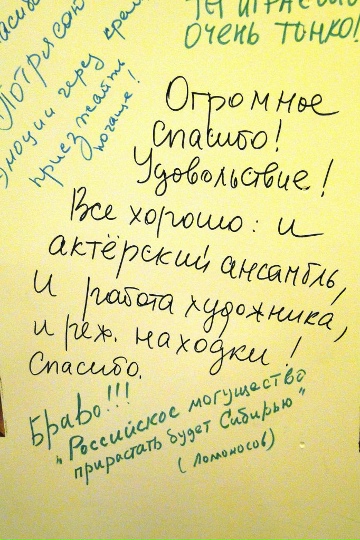 Потрясающ
эмоции через край
приезжайте
почаще!
очень тонко!
Огромное
Спасибо!
Удовольствие!
Все хорошо: и
актёрский ансамбль,
и работа художника,
и реж. находки!
Спасибо.
Браво!!!
"Российское могущество
прирастать будет Сибирью"
(Ломоносов)